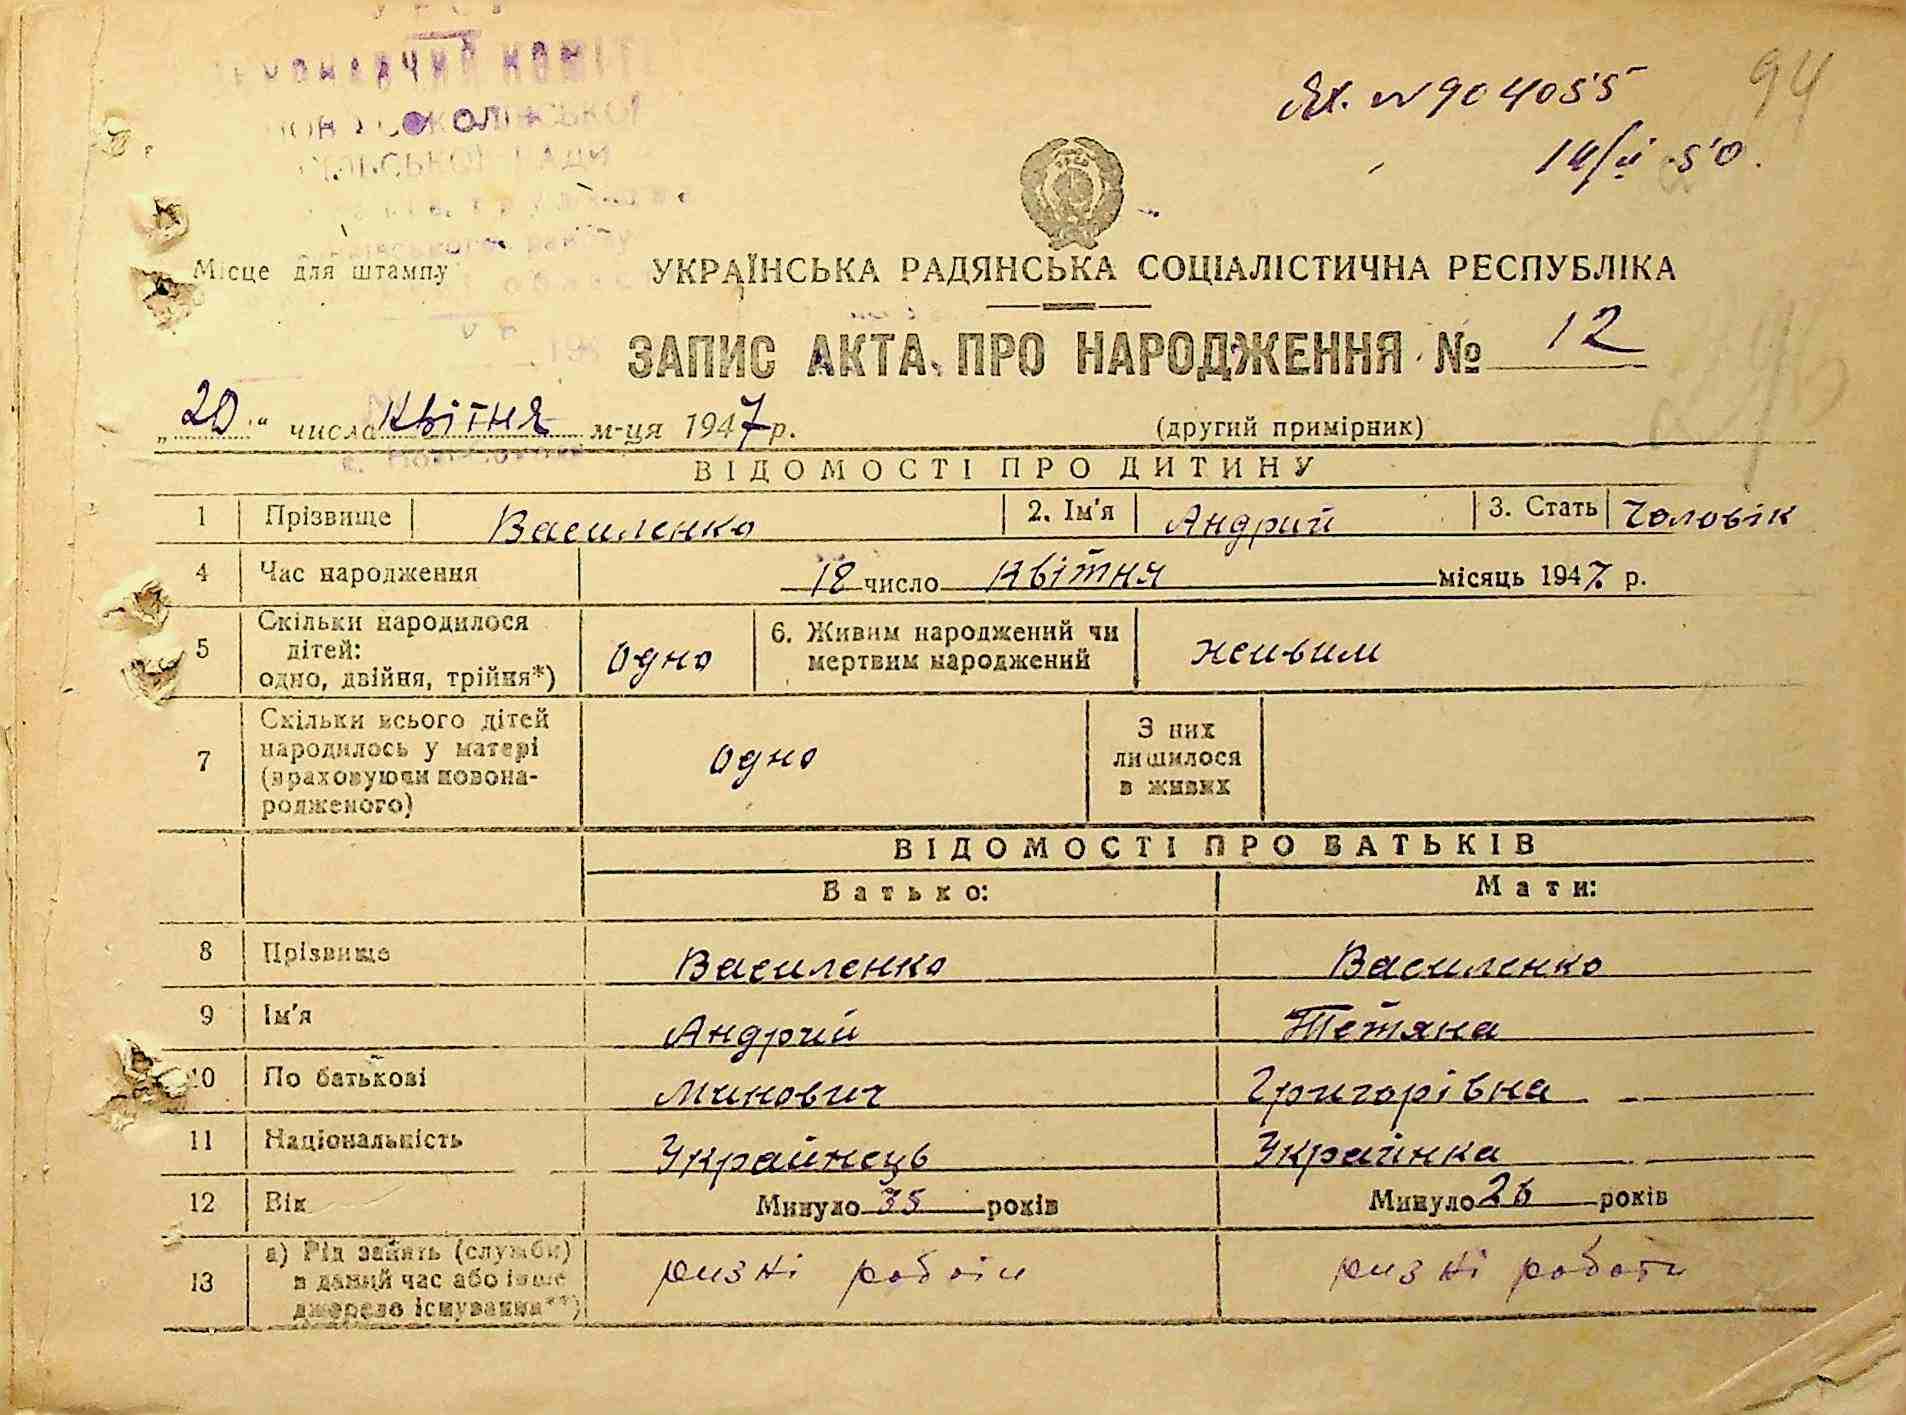 94
№ 904055
50.
СІЛЬСЬКОЇ РАДИ
Місце для штампу
УКРАЇНСЬКА РАДЯНСЬКА СОЦІАЛІСТИЧНА РЕСПУБЛІКА
ЗАПИС АКТА ПРО НАРОДЖЕННЯ № 12
„20“ числа квітня м-ця 1947 р. (другий примірник)
ВІДОМОСТІ ПРО ДИТИНУ
1 Прізвище Василенко 2. Ім'я Андрий 3. Стать Чоловік
4 Час народження 18 число квітня місяць 1947 р.
5 Скільки народилося дітей: одно, двійня, трійня*) одно 6. Живим народжений чи мертвим народжений живим
7 Скільки всього дітей народилось у матері (враховуючи новонародженого) одно З них лишилося в живих
ВІДОМОСТІ ПРО БАТЬКІВ
Батько: Мати:
8 Прізвище Василенко Василенко
9 Ім'я Андрий Тетяна
10 По батькові Минович Григорівна
11 Національність Украйнець Украйнка
12 Вік Минуло 35 років Минуло 26 років
13 а) Рід занять (служби) в даний час або інше джерело існування**) ризні роботи ризні роботи